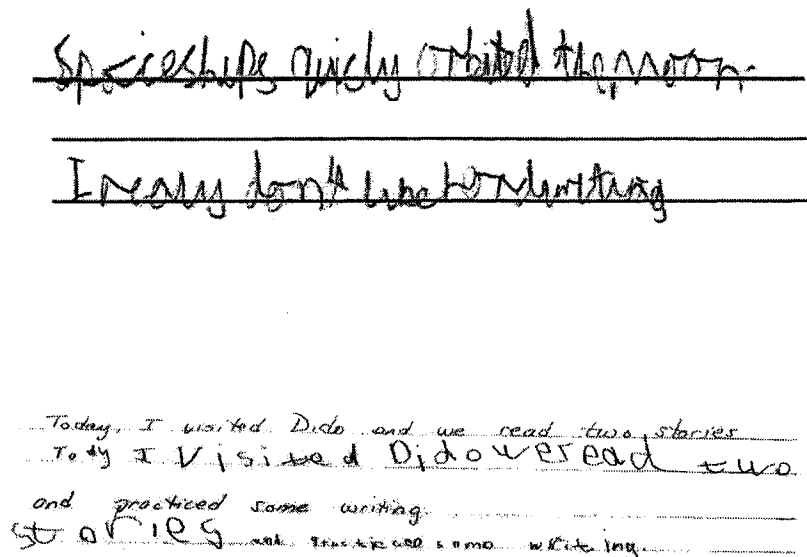 Spaceships quicly orbited the moon.
I realy don't like handwriting
Today, I visited Dido and we read two stories
Today I Visited Dido we read two
and practiced some writing.
stories and practiced some writing.